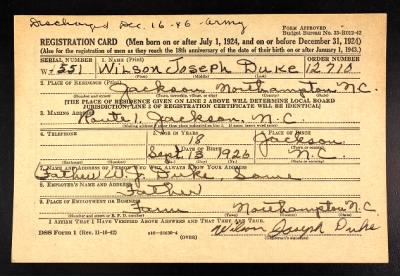 Discharged Dec. 16-46 - Army
Form Approved
Budget Bureau No. 33-R012-42
REGISTRATION CARD (Men born on or after July 1, 1924, and on or before December 31, 1924)
(Also for the registration of men as they reach the 18th anniversary of the date of their birth on or after January 1, 1943.)
SERIAL NUMBER 1. NAME (Print) ORDER NUMBER
W 251 Wilson Joseph Duke 12710
(First) (Middle) (Last)
2. PLACE OF RESIDENCE (Print)
Jackson Northampton N.C.
[THE PLACE OF RESIDENCE GIVEN ON LINE 2 ABOVE WILL DETERMINE LOCAL BOARD
JURISDICTION; LINE 2 OF REGISTRATION CERTIFICATE WILL BE IDENTICAL]
3. MAILING ADDRESS
Route 1, Jackson, N.C.
[Mailing address if other than place indicated on line 2. If same, insert word same]
4. TELEPHONE 5. AGE IN YEARS 6. PLACE OF BIRTH
18 Jackson
DATE OF BIRTH (Town or county)
Sept. 13 1926 N.C.
(Exchange) (Number) (Mo.) (Day) (Yr.) (State or country)
7. NAME AND ADDRESS OF PERSON WHO WILL ALWAYS KNOW YOUR ADDRESS
Father W. J. Duke, Same
8. EMPLOYER'S NAME AND ADDRESS
Father
9. PLACE OF EMPLOYMENT OR BUSINESS
Farm Northampton N.C.
(Number and street or R. F. D. number) (Town) (County) (State)
I AFFIRM THAT I HAVE VERIFIED ABOVE ANSWERS AND THAT THEY ARE TRUE.
DSS Form 1 (Rev. 11-16-42) (OVER) Wilson Joseph Duke